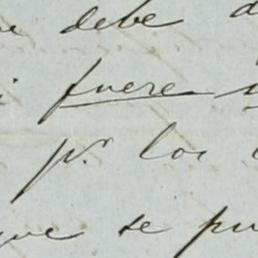 ue debe d
i fuere
pr. los
que se pu